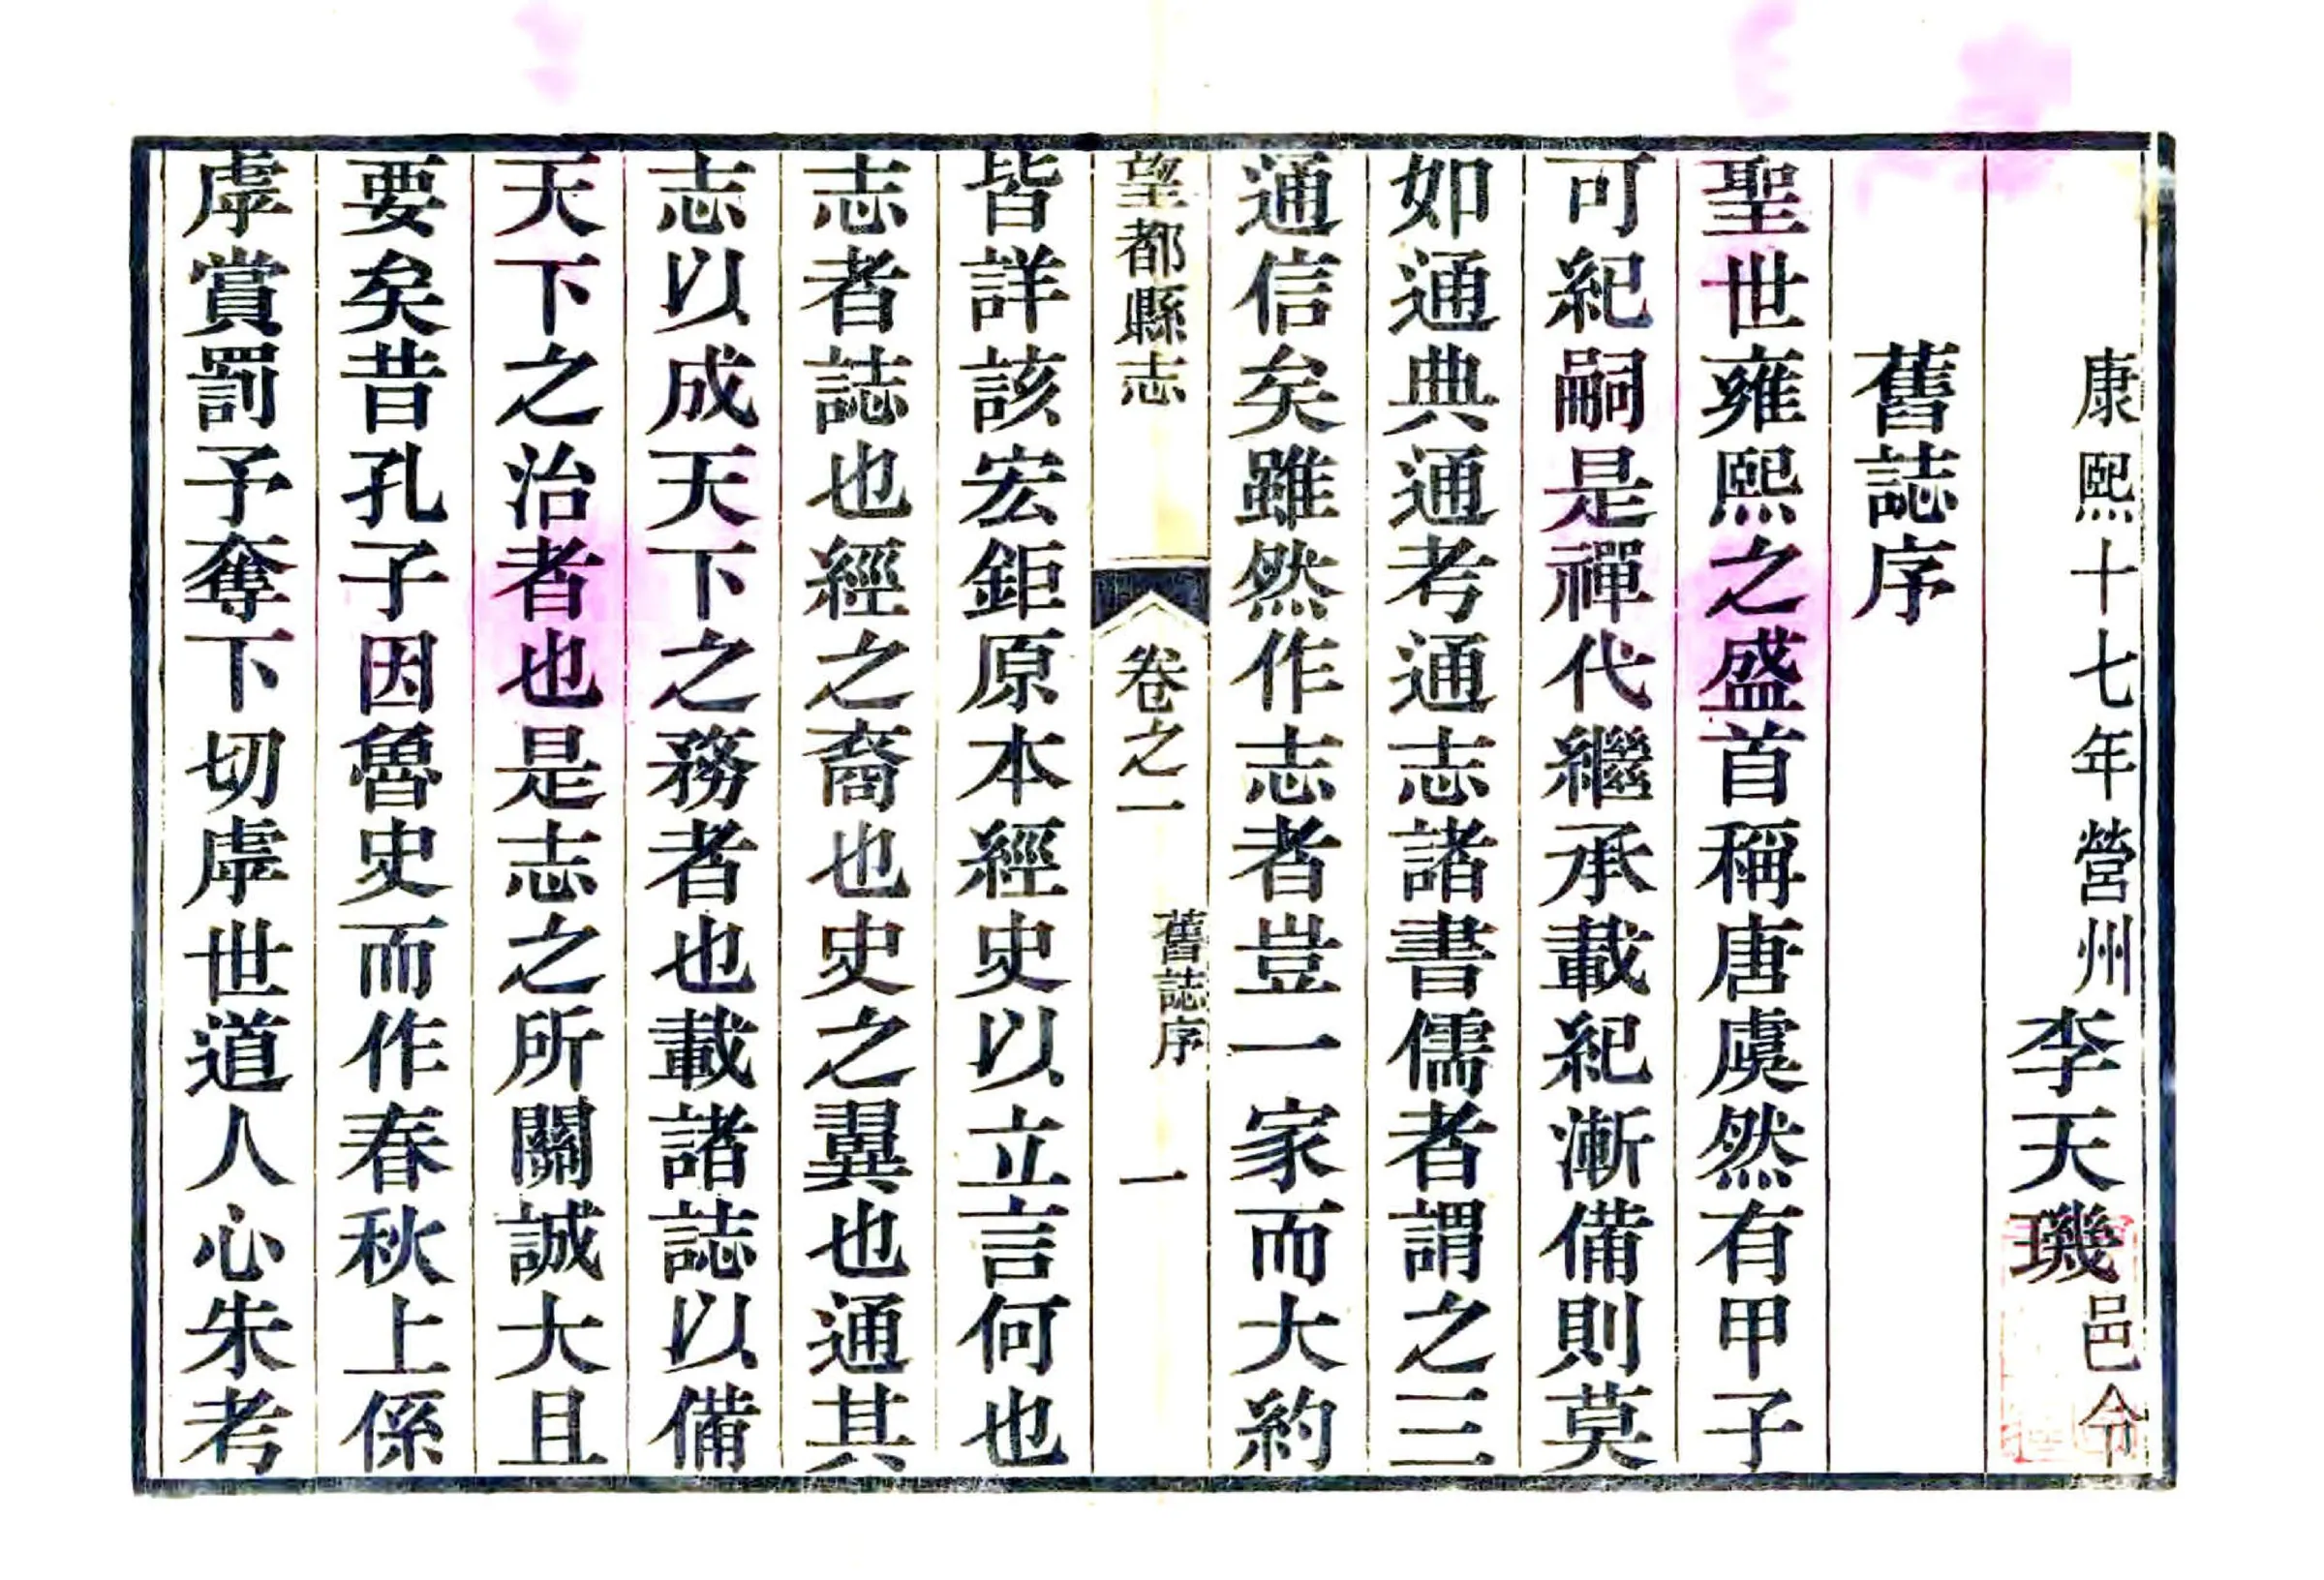 康熙十七年營州李天璣邑令
舊誌序
聖世雍熙之盛首稱唐虞然有甲子
可紀嗣是禪代繼承載紀漸備則莫
如通典通考通志諸書儒者謂之三
通信矣雖然作志者豈一家而大約
望都縣志 卷之一 舊誌序 一
皆詳該宏鉅原本經史以立言何也
志者誌也經之裔也史之翼也通其
志以成天下之務者也載諸誌以備
天下之治者也是志之所關誠大且
要矣昔孔子因魯史而作春秋上係
虖賞罰予奪下切虖世道人心朱考